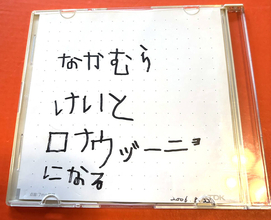 なかむら
けいと
ロナウヅーニョ
になる